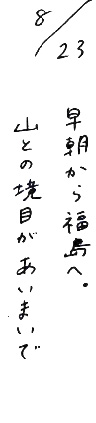 8/23
早朝から福島へ。
山との境目があいまいで